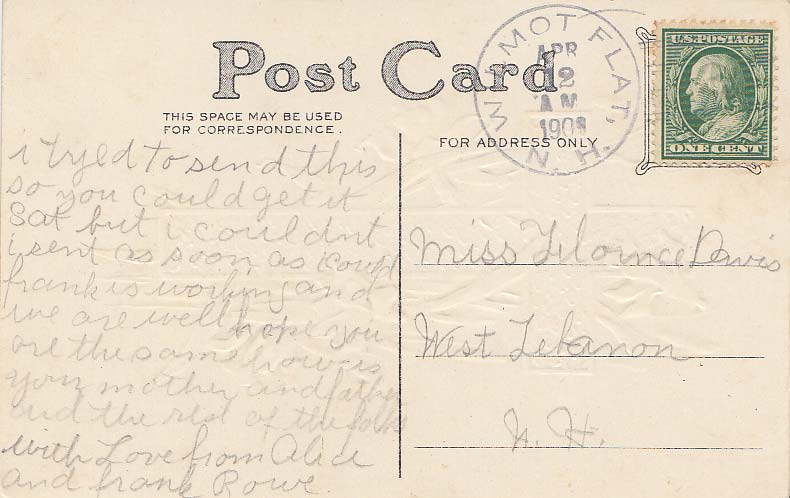 Post Card
THIS SPACE MAY BE USED
FOR CORRESPONDENCE.
FOR ADDRESS ONLY
WILMOT FLAT,
APR
2
AM
1909
N. H.
U.S. POSTAGE
ONE CENT
i tryed to send this
so you could get it
Sat but i couldnt
i sent as soon as i could
frank is working and
we are well hope you
are the same how is
your mother and father
and the rest of the folks
with Love from Alice
and frank Rowe.
Miss Florince Davis
West Lebanon
N. H.